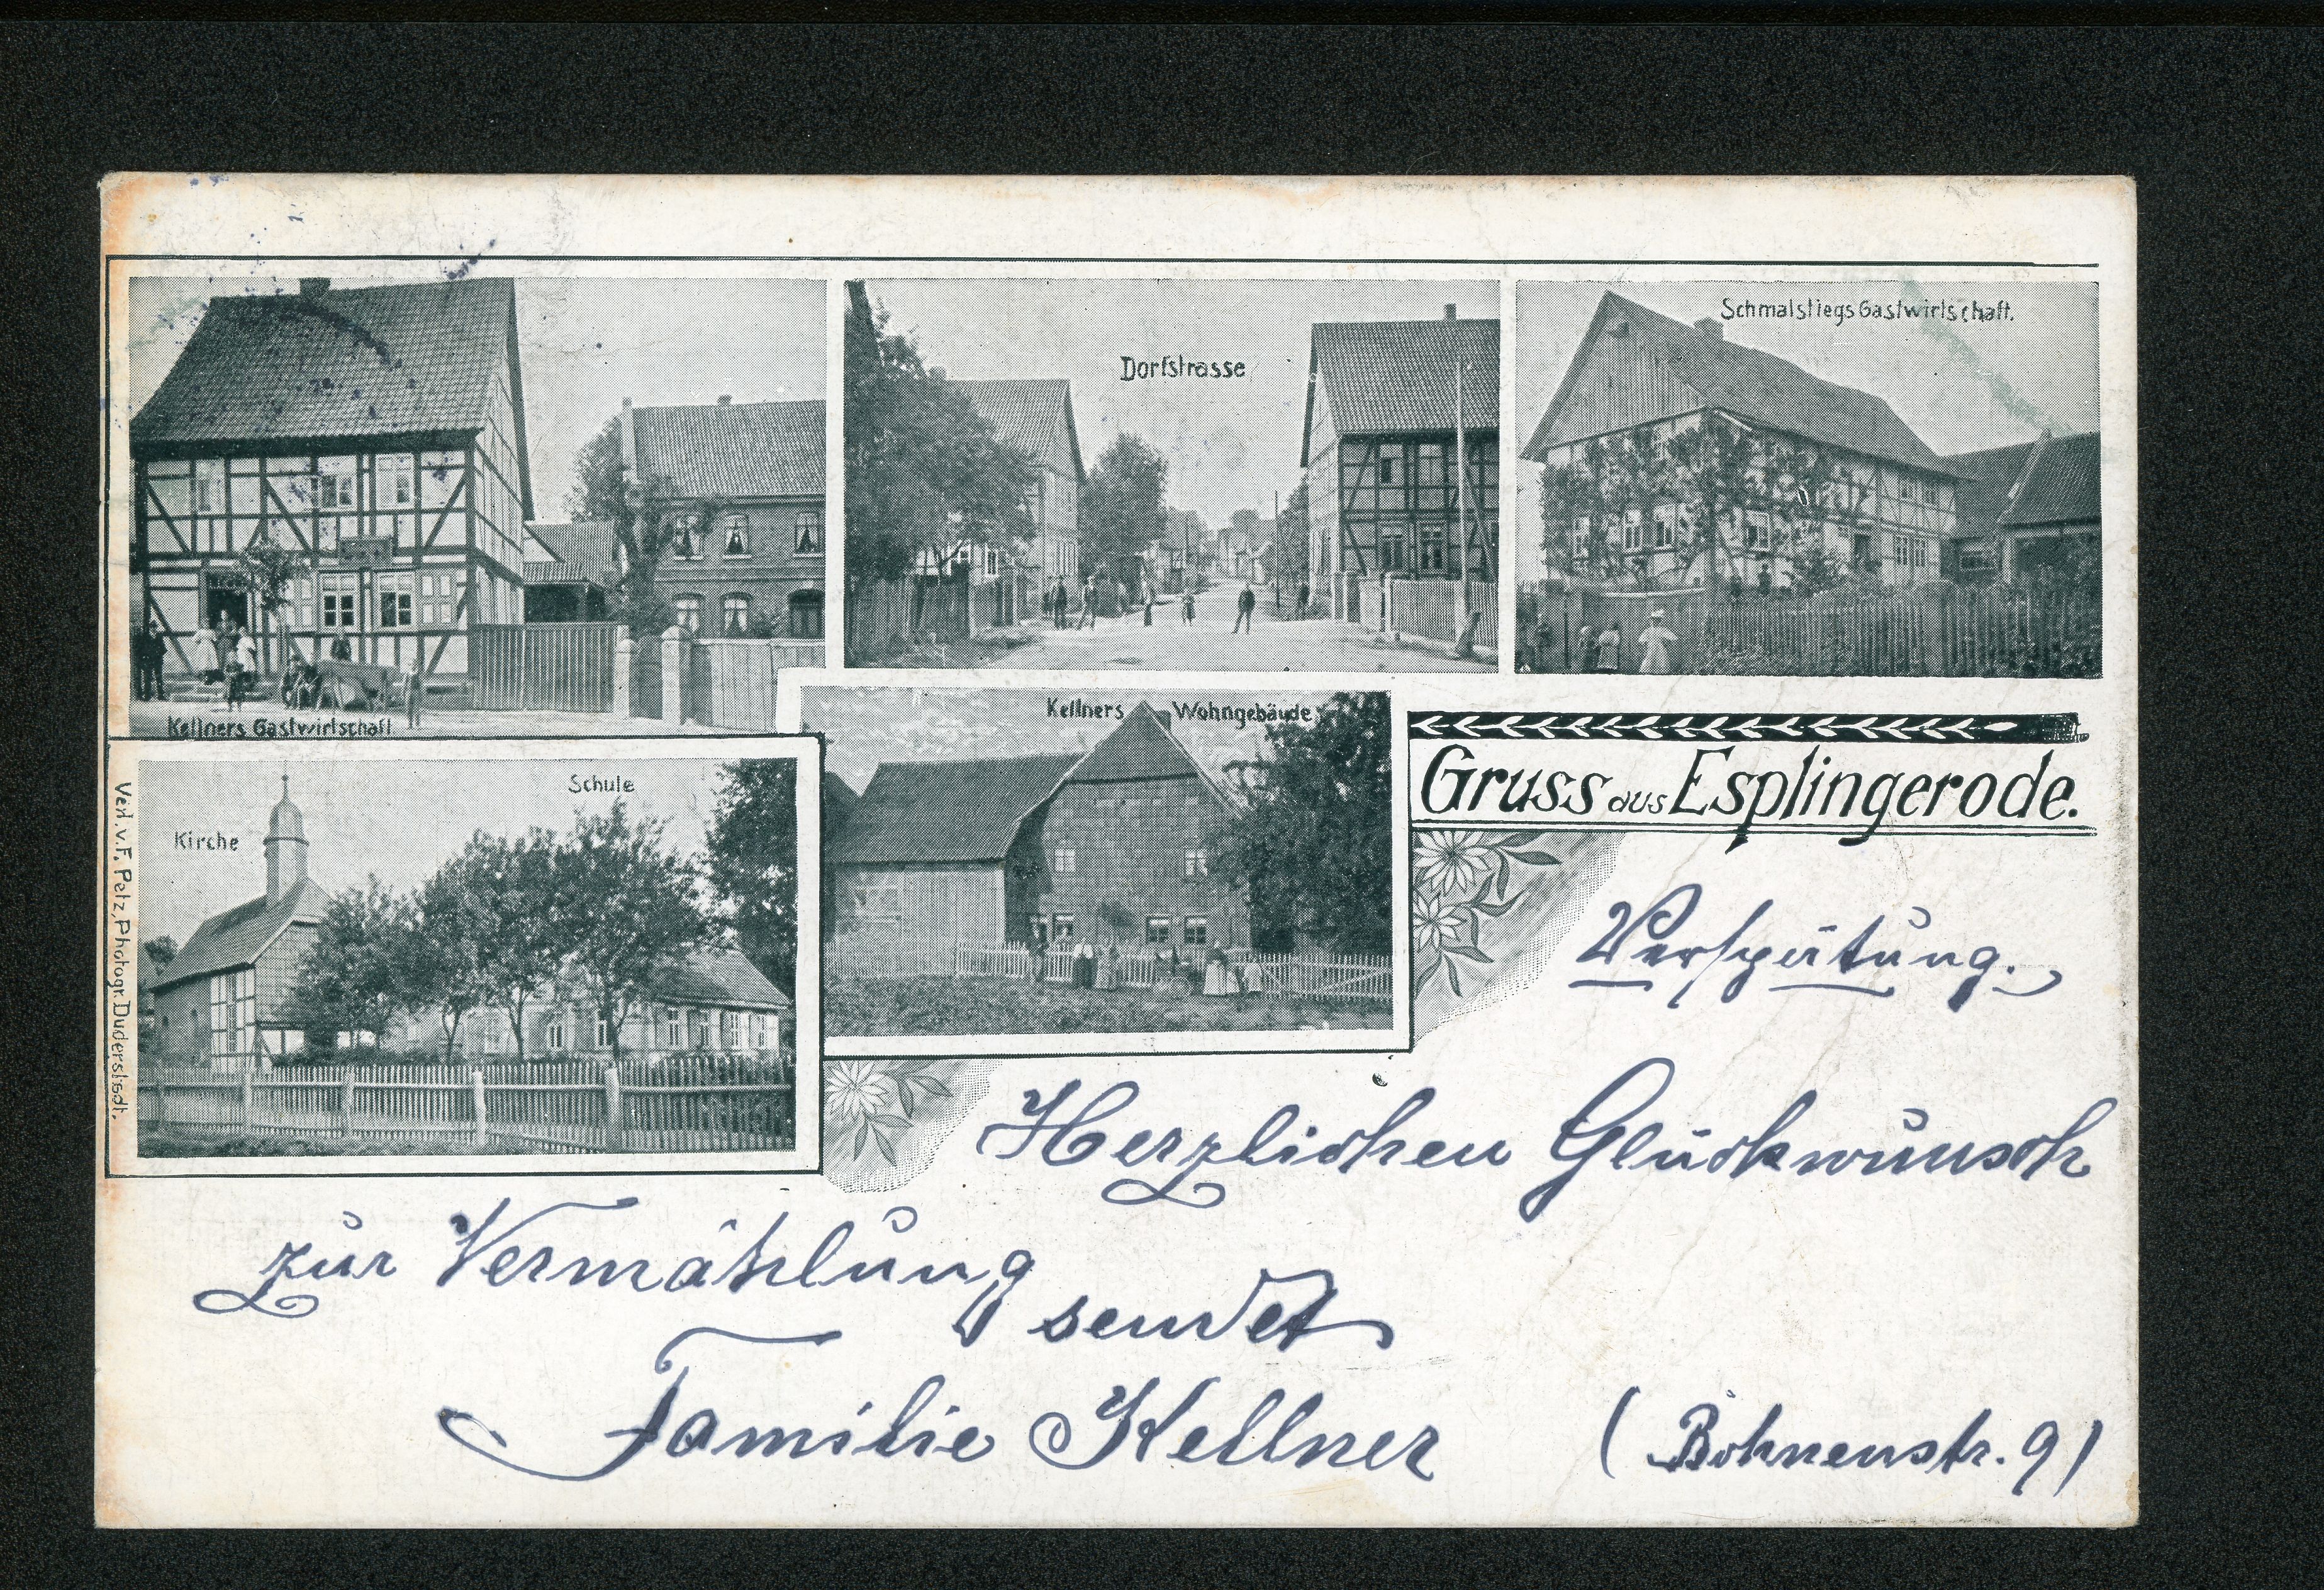 Schmalstiegs Gastwirtschaft.
Dorfstrasse
Kellners Gastwirtschaft
Kellners Wohngebäude
Gruss aus Esplingerode.
Schule
Kirche
Verl. v. F. Petz, Photogr. Duderstadt.
Verspätung.
Herzlichen Glückwunsch
zur Vermählung
sendet
Familie Kellner (Bohnenstr. 9)